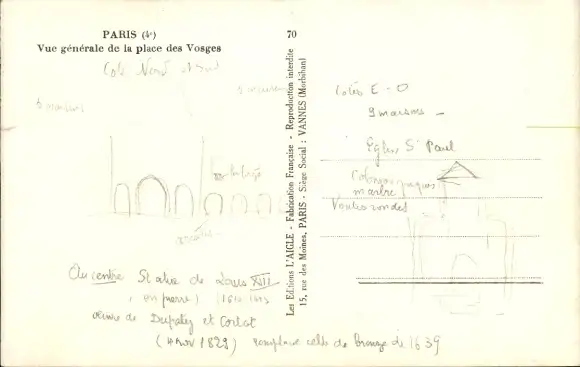 PARIS (4e)
Vue générale de la place des Vosges
70
Coté Nord et Sud
maisons
arcades
Au centre Statue de Louis XIII
(en pierre)
œuvre de Dupaty et Cortot
(4 Nov 1829) remplace celle de Bronze de 1639
Les Editions L'AIGLE - Fabrication Française - Reproduction interdite
15, rue des Moines, PARIS - Siège Social : VANNES (Morbihan)
Cotés E - O
9 maisons -
Eglise St Paul
marbre
Voutes rondes